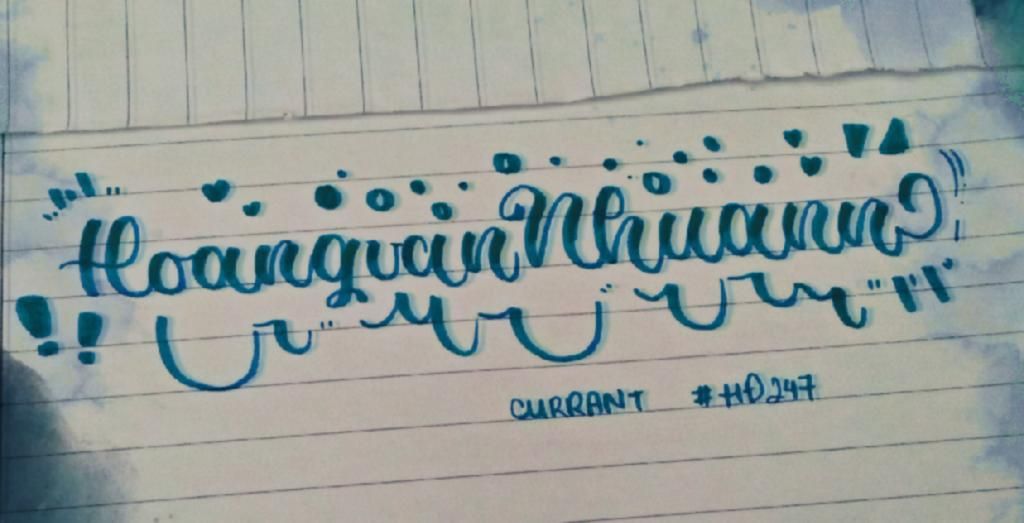 HoangvanNhuann
CURRANT #HĐ247